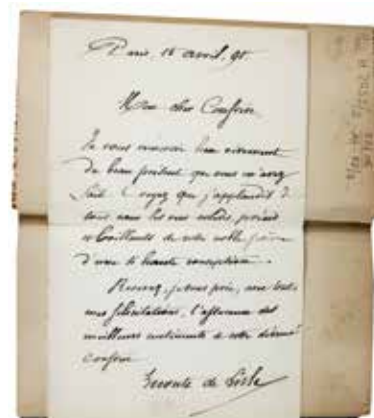 Paris, 16 avril, 91
Mon cher Confrère,
Je vous remercie bien vivement
du beau présent que vous m'avez
fait. Croyez que j'applaudis à
tous nos les vers solides, précis
et brillants de votre noble poème
d'une si haute conception.
Recevez, je vous prie, avec toutes
mes félicitations, l'assurance des
meilleurs sentiments de votre dévoué
confrère
Leconte de Lisle